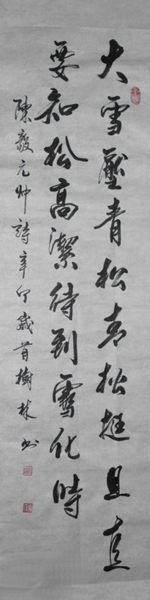 大雪壓青松青松挺且直
要知松高潔待到雪化時
陳毅元帥詩辛卯歲首樹林書